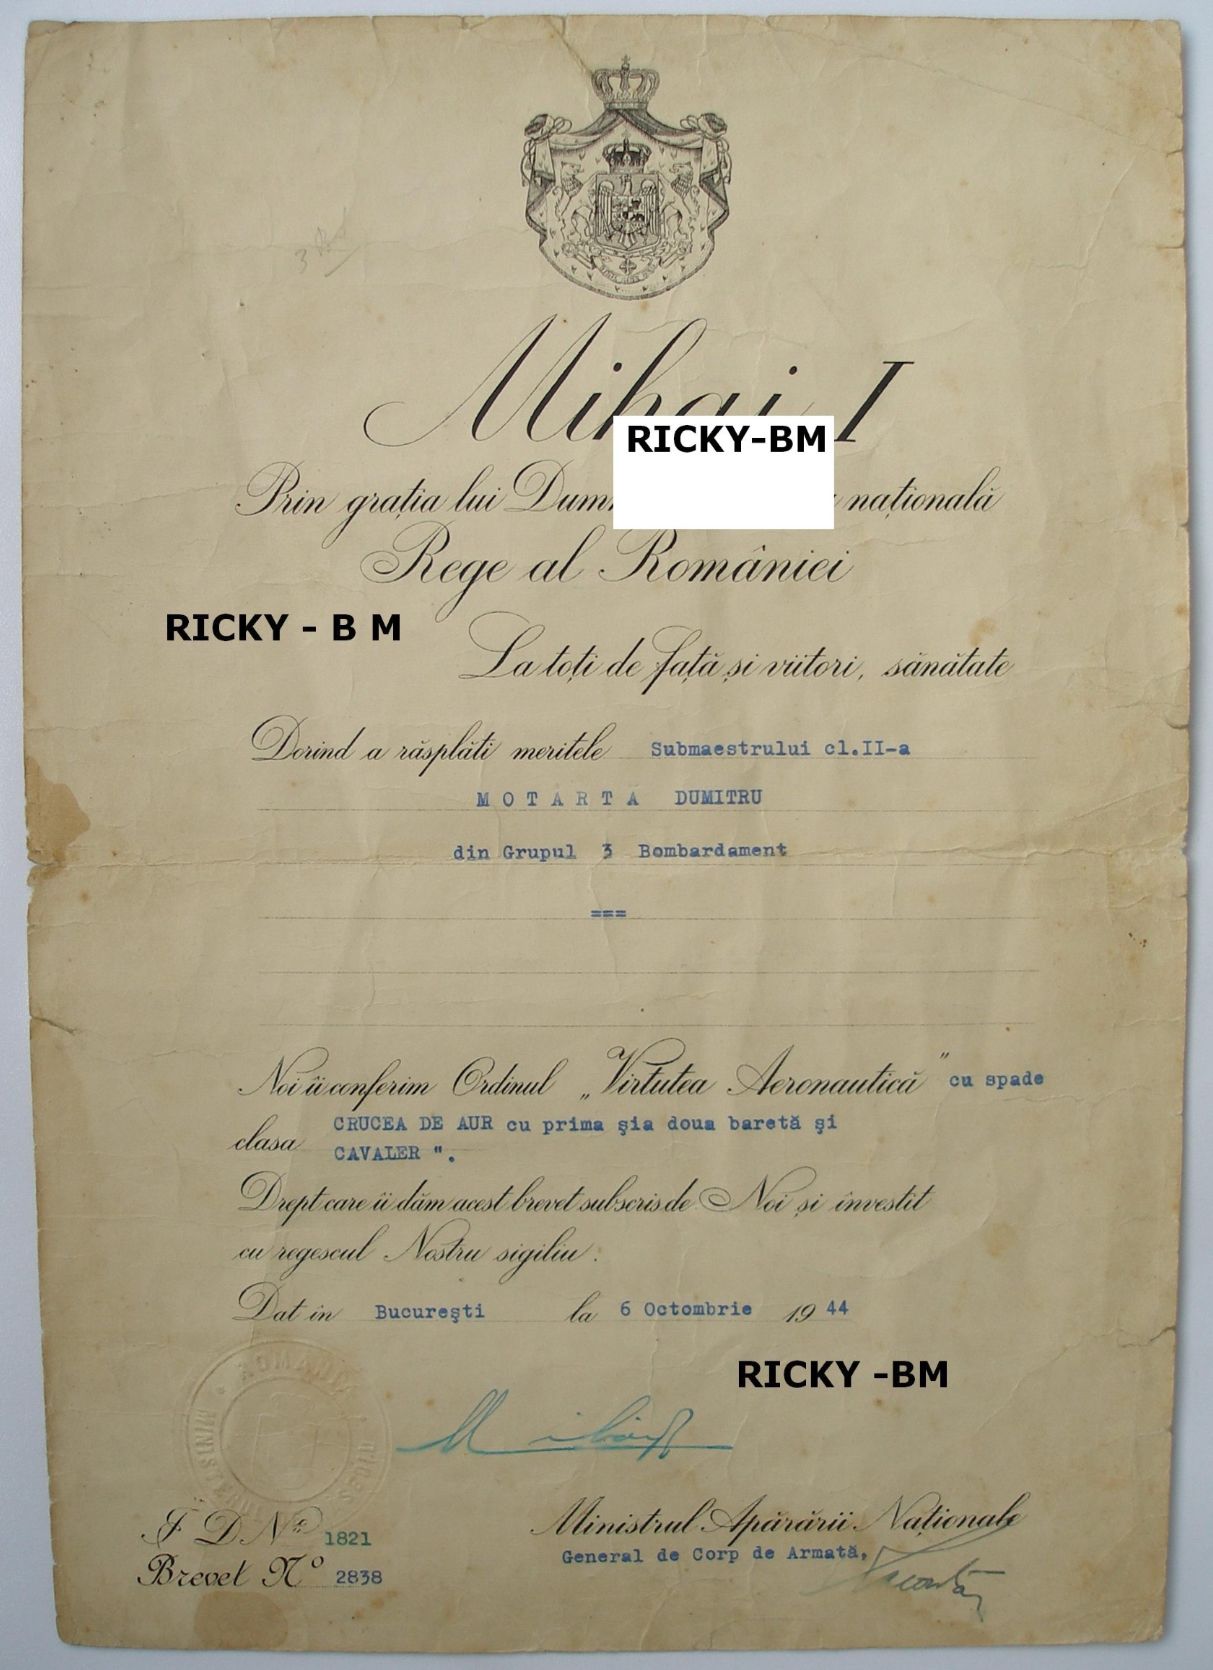 Mihai I
RICKY-BM
Prin grația lui națională
Rege al României
RICKY - B M
La toți de față și viitori, sănătate
Dorind a răsplăti meritele Submaestrului cl.II-a
M O T A R T A DUMITRU
din Grupul 3 Bombardament
===
Noi îi conferim Ordinul „Virtutea Aeronautică” cu spade
clasa CRUCEA DE AUR cu prima șia doua baretă și
CAVALER ".
Drept care îi dăm acest brevet subscris de Noi și învestit
cu regescul Nostru sigiliu.
Dat în București la 6 Octombrie 1944
RICKY -BM
ROMANIA
Mihai R
Ministrul Apărării Naționale
General de Corp de Armată,
I D Nº 1821
Brevet Nº 2838